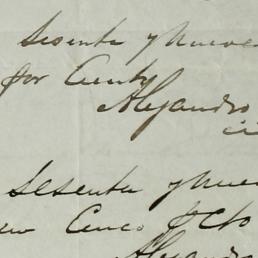 Sesenta y Nueve
por Cunty
Alejandro
Sesenta y Nue
Cinco p cto
Alejandro